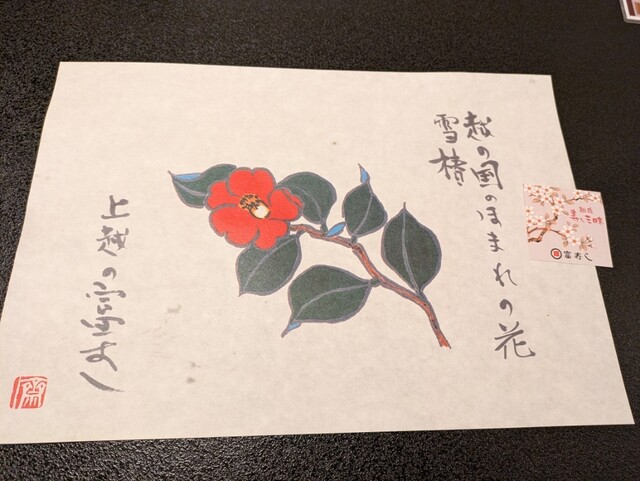 越の国のほまれの花
雪椿
上越の富寿し
富寿し